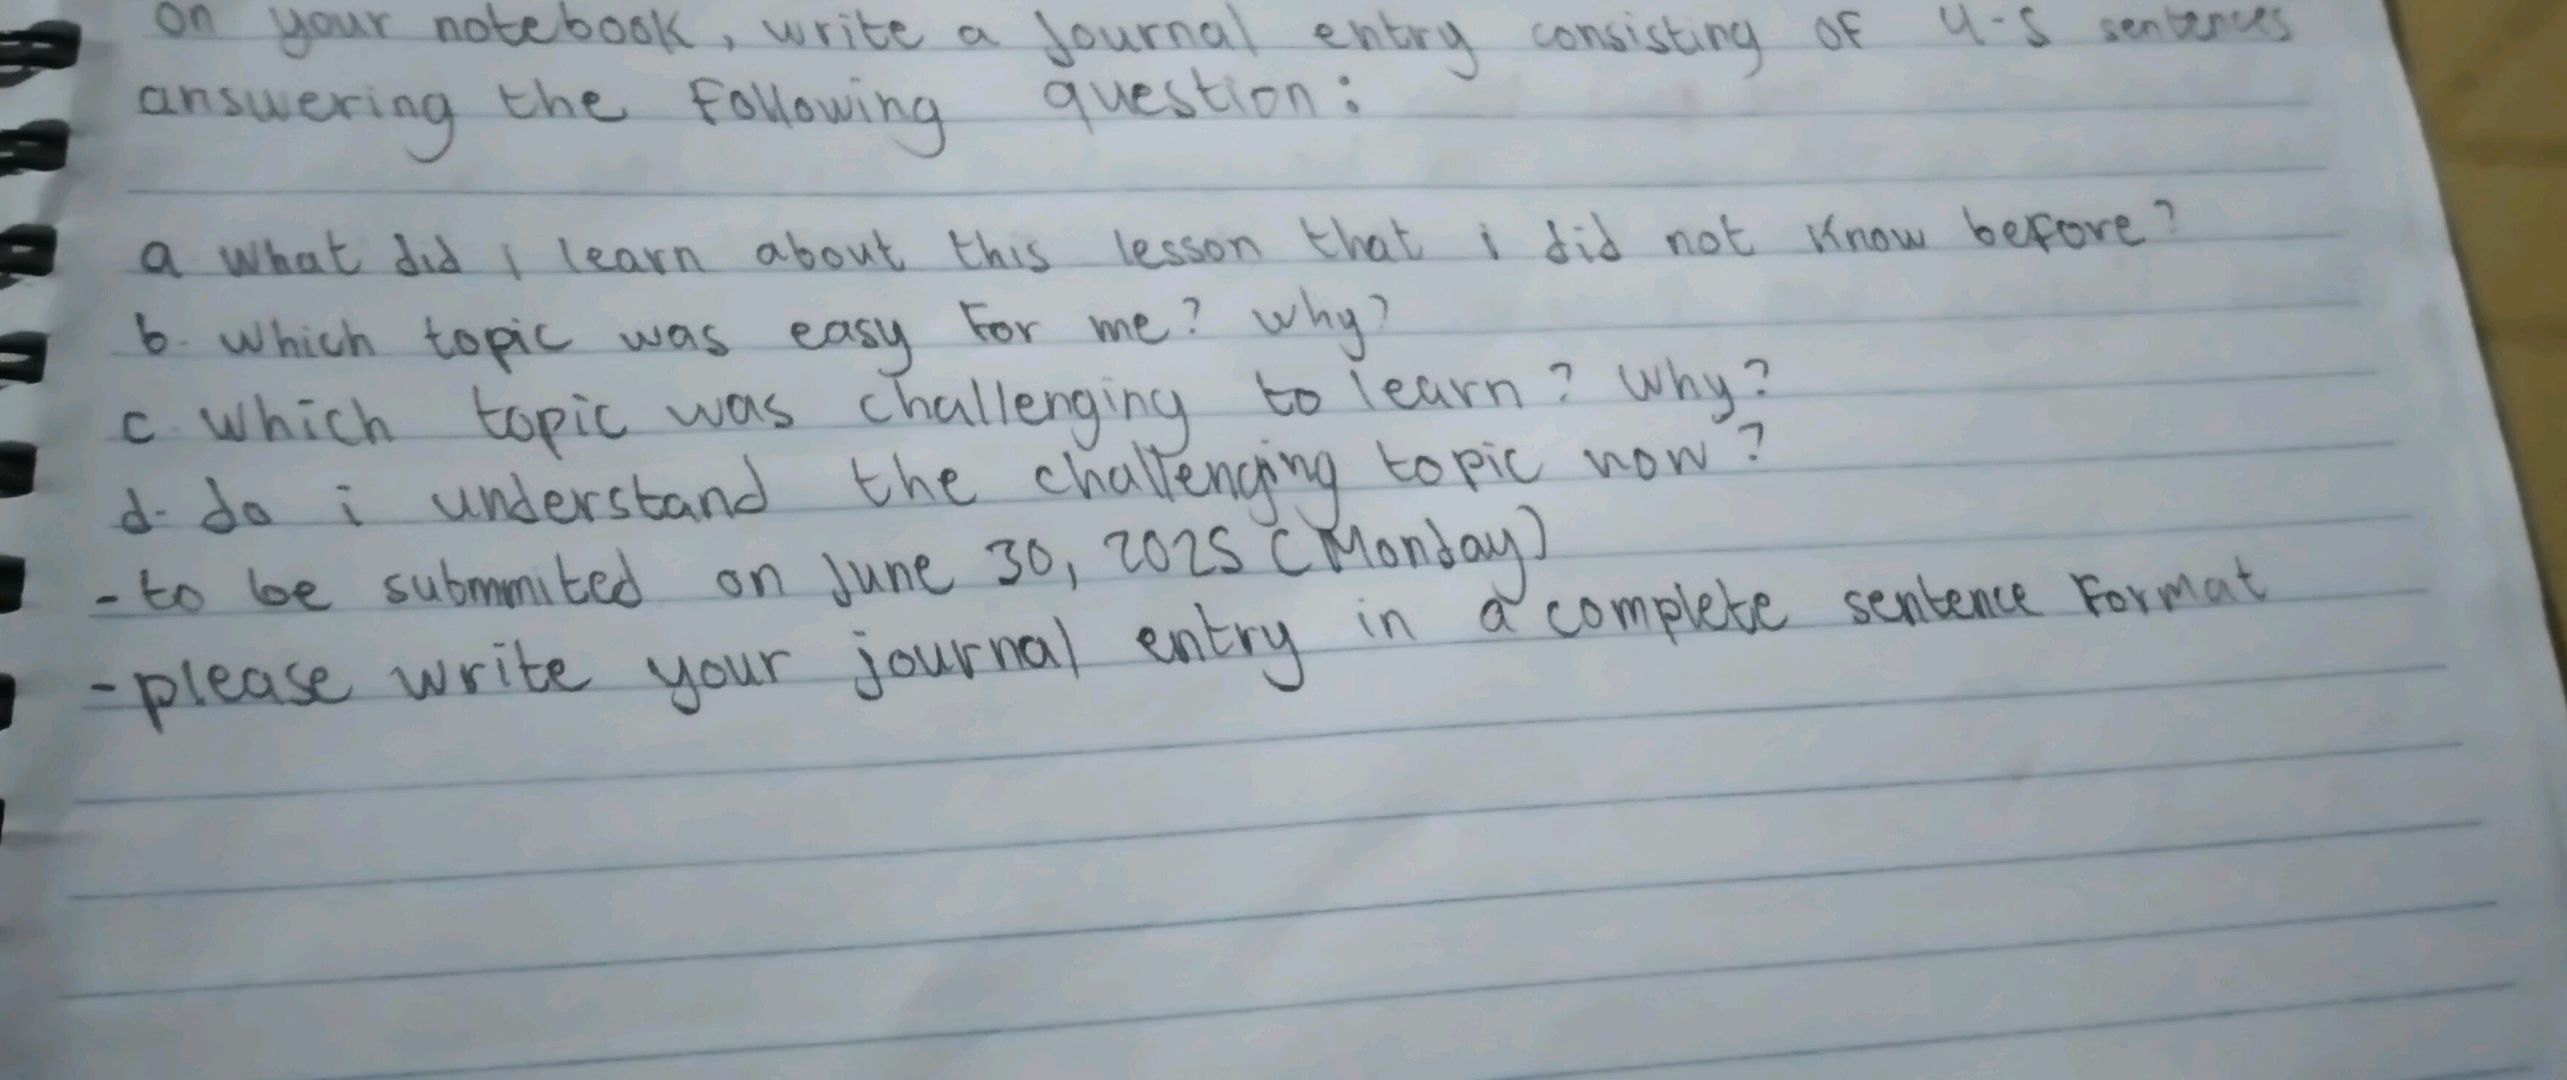 on your notebook, write a Journal entry consisting of 4-5 sentences
answering the following question:
a. what did i learn about this lesson that i did not know before?
b. which topic was easy for me? why?
c. which topic was challenging to learn? why?
d. do i understand the challenging topic now?
- to be submmited on June 30, 2025 (Monday)
- please write your journal entry in a complete sentence format